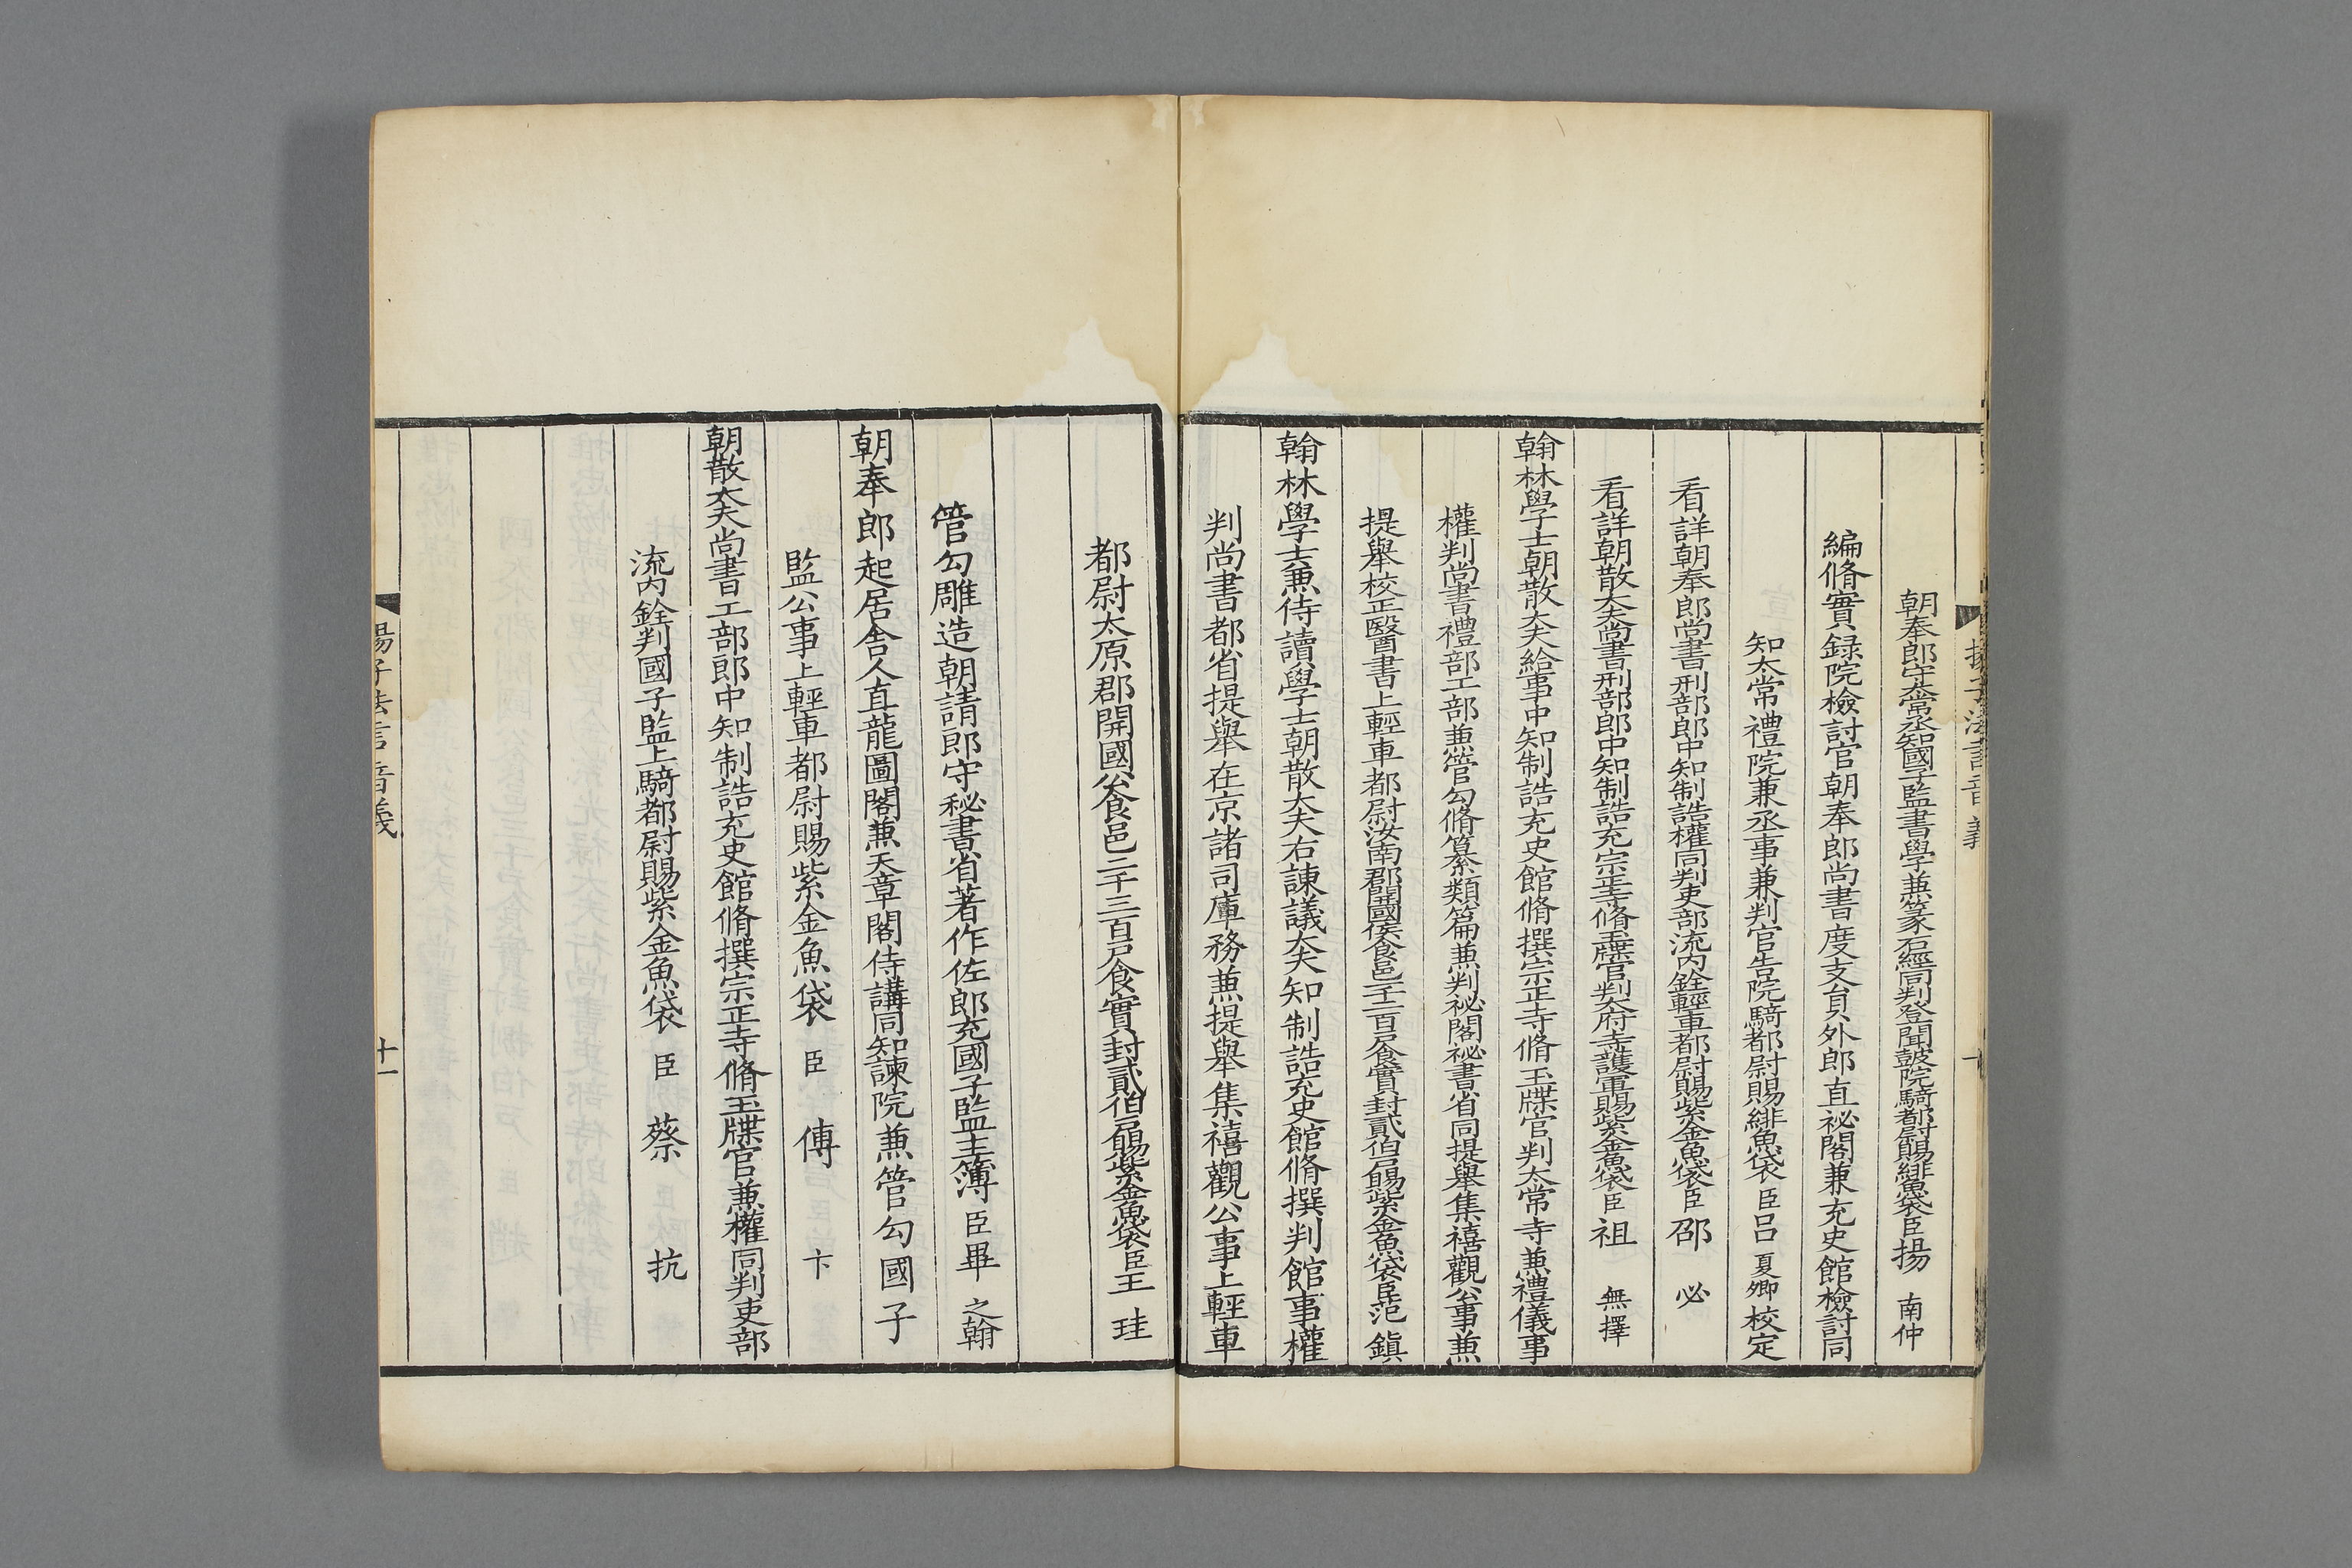 揚子法言音義 十
朝奉郎守太常丞知國子監書學兼篆石經同判登聞皷院騎都尉賜緋魚袋臣揚 南仲
編脩實録院檢討官朝奉郎尚書度支貟外郎直祕閣兼充史館檢討同
知太常禮院兼丞事兼判官告院騎都尉賜緋魚袋臣呂 夏卿 校定
看詳朝奉郎尚書刑部郎中知制誥權同判吏部流内銓輕車都尉賜紫金魚袋臣邵 必
看詳朝散大夫尚書刑部郎中知制誥充宗正寺脩玉牒官判太府寺護軍賜紫金魚袋臣祖 無擇
翰林學士朝散大夫給事中知制誥充史館脩撰宗正寺脩玉牒官判太常寺兼禮儀事
權判尚書禮部工部兼管勾脩纂類篇兼判祕閣祕書省同提舉集禧觀公事兼
提舉校正醫書上輕車都尉汝南郡開國侯食邑一千二百戶食實封貳伯戶賜紫金魚袋臣范 鎮
翰林學士兼侍讀學士朝散大夫右諫議大夫知制誥充史館脩撰判館事權
判尚書都省提舉在京諸司庫務兼提舉集禧觀公事上輕車
都尉太原郡開國公食邑二千三百戶食實封貳伯戶賜紫金魚袋臣王 珪
管勾雕造朝請郎守秘書省著作佐郎充國子監主簿 臣畢 之翰
朝奉郎起居舍人直龍圖閣兼天章閣侍講同知諫院兼管勾國子
監公事上輕車都尉賜紫金魚袋 臣 傅 卞
朝散大夫尚書工部郎中知制誥充史館脩撰宗正寺脩玉牒官兼權同判吏部
流内銓判國子監上騎都尉賜紫金魚袋 臣 蔡 抗
揚子法言音義 十一